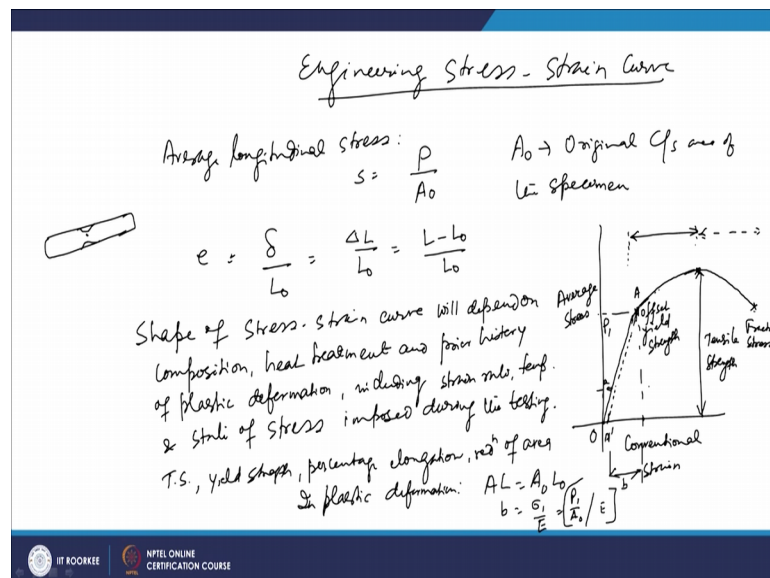 Engineering Stress-Strain Curve
Average longitudinal stress:
s = P / A₀
A₀ → Original C/s area of
the specimen
e = δ/L₀ = ΔL/L₀ = L-L₀/L₀
Shape of Stress-strain curve will depend on
composition, heat treatment and prior history
of plastic deformation, including strain rate, temp.
& state of stress imposed during the testing.
T.S., yield strength, percentage elongation, redⁿ of area
In plastic deformation: AL = A₀L₀
b = σ₁/E = [P₁/A₀ / E]
Average
Stress
P₁
A
Offset
yield
Strength
Tensile
Strength
Fract
Stress
O
A'
Conventional
Strain
b
IIT ROORKEE
NPTEL ONLINE
CERTIFICATION COURSE